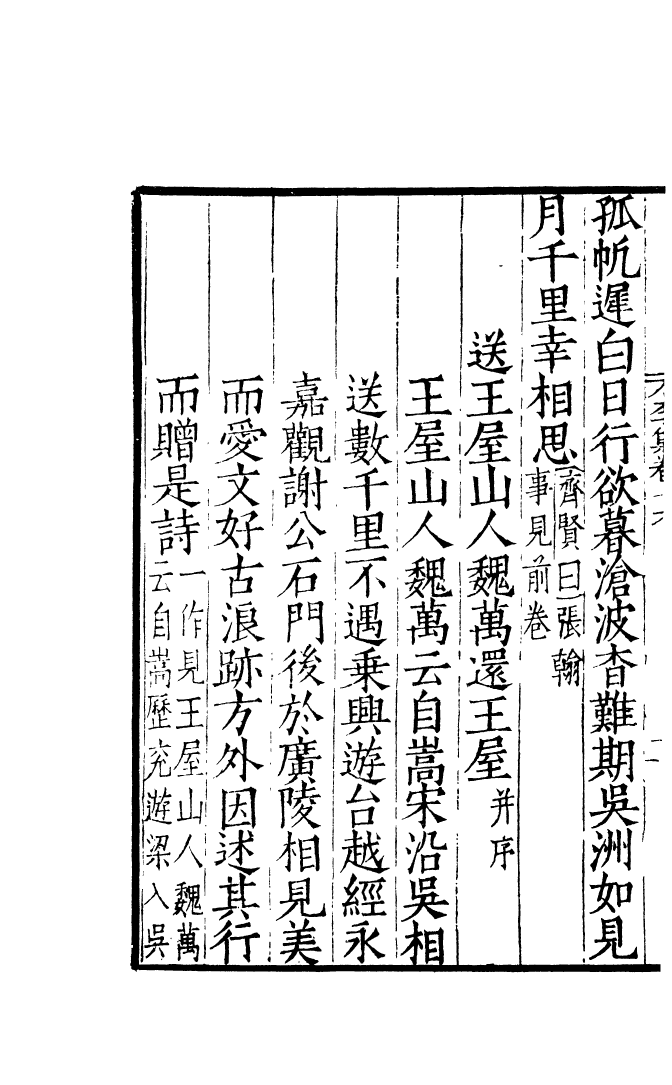 孤帆遲白日行欲暮滄波杳難期吳洲如見
月千里幸相思齊賢曰張翰
事見前卷
送王屋山人魏萬還王屋并序
王屋山人魏萬云自嵩宋沿吳相
送數千里不遇乗興遊台越經永
嘉觀謝公石門後於廣陵相見美
而愛文好古浪跡方外因述其行
而贈是詩一作見王屋山人魏萬
云自嵩歷兖遊梁入吳